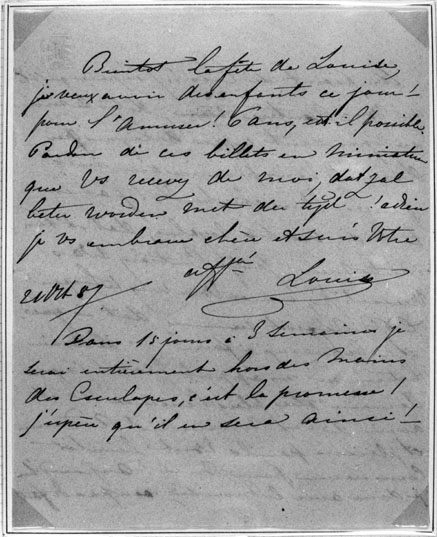 Bientot la fête de Louise,
je veux avoir des enfants ce jour -
pour l'Amuser! 6 ans, est il possible.
Pardon de ces billets en miniature
que Vs recevez de moi, dat zal
beter worden met der tijd! adieu
je vs embrasse chère et suis Votre
affné Louise
21 Oct 87
Dans 15 jours à 3 semaines je
serai entièrement hors des mains
des Esculapes, c'est la promesse!
j'espère qu'il en sera ainsi! -